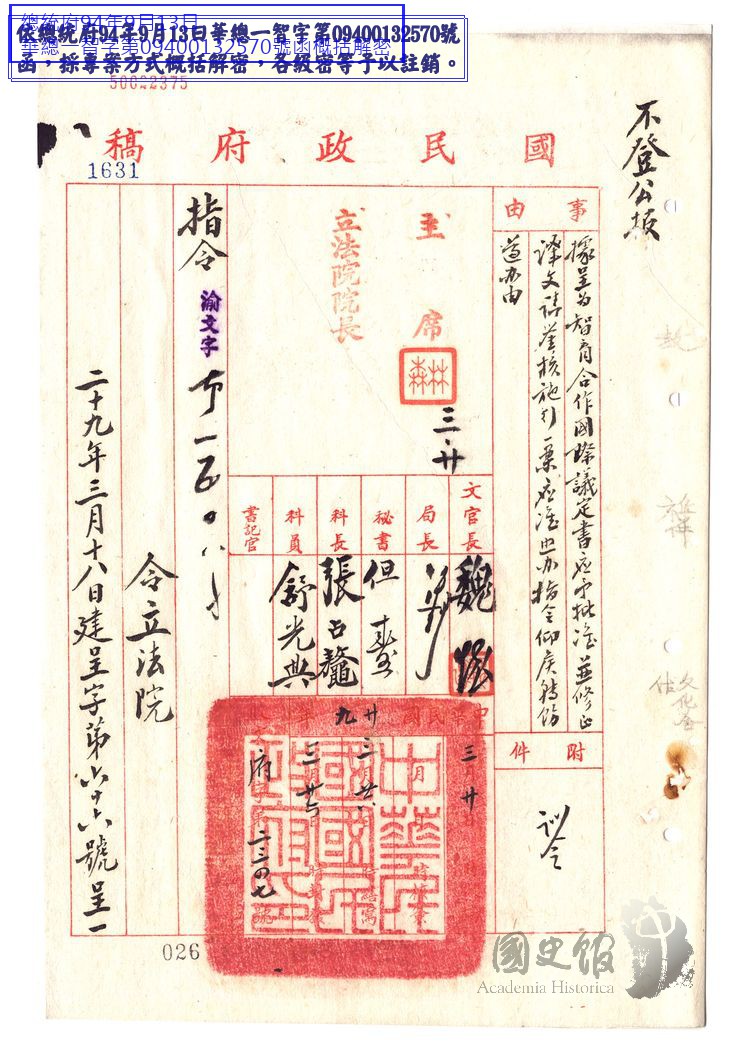 總統府94年9月13日
華總一智字第09400132570號函概括解密
依總統府94年9月13日華總一智字第09400132570號
函,採專案方式概括解密,各級密等予以註銷。
50022375
不登公報
國民政府稿
1631
事由
據呈為智育合作國際議定書應予批准並修正
譯文請鑒核施行一案應准照辦指令仰候轉飭
遵辦由
附件
訓令
主席
林森
三、廿
立法院院長
文官長
魏懷
局長
秘書
但燾
科長
張占鼇
科員
舒光典
書記官
中華民國廿九年
三月廿
三月廿
三月廿
府字第二三〇七號
指令
渝文字
令立法院
二十九年三月十八日建呈字第六十六號呈一
026
國史館
Academia Historica